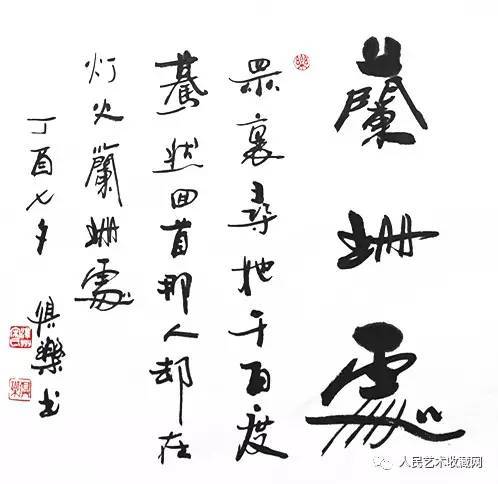 蘭珊處
眾裏尋他千百度
驀然回首那人却在
灯火蘭珊處
丁酉七夕 俱樂书
人民艺术收藏网